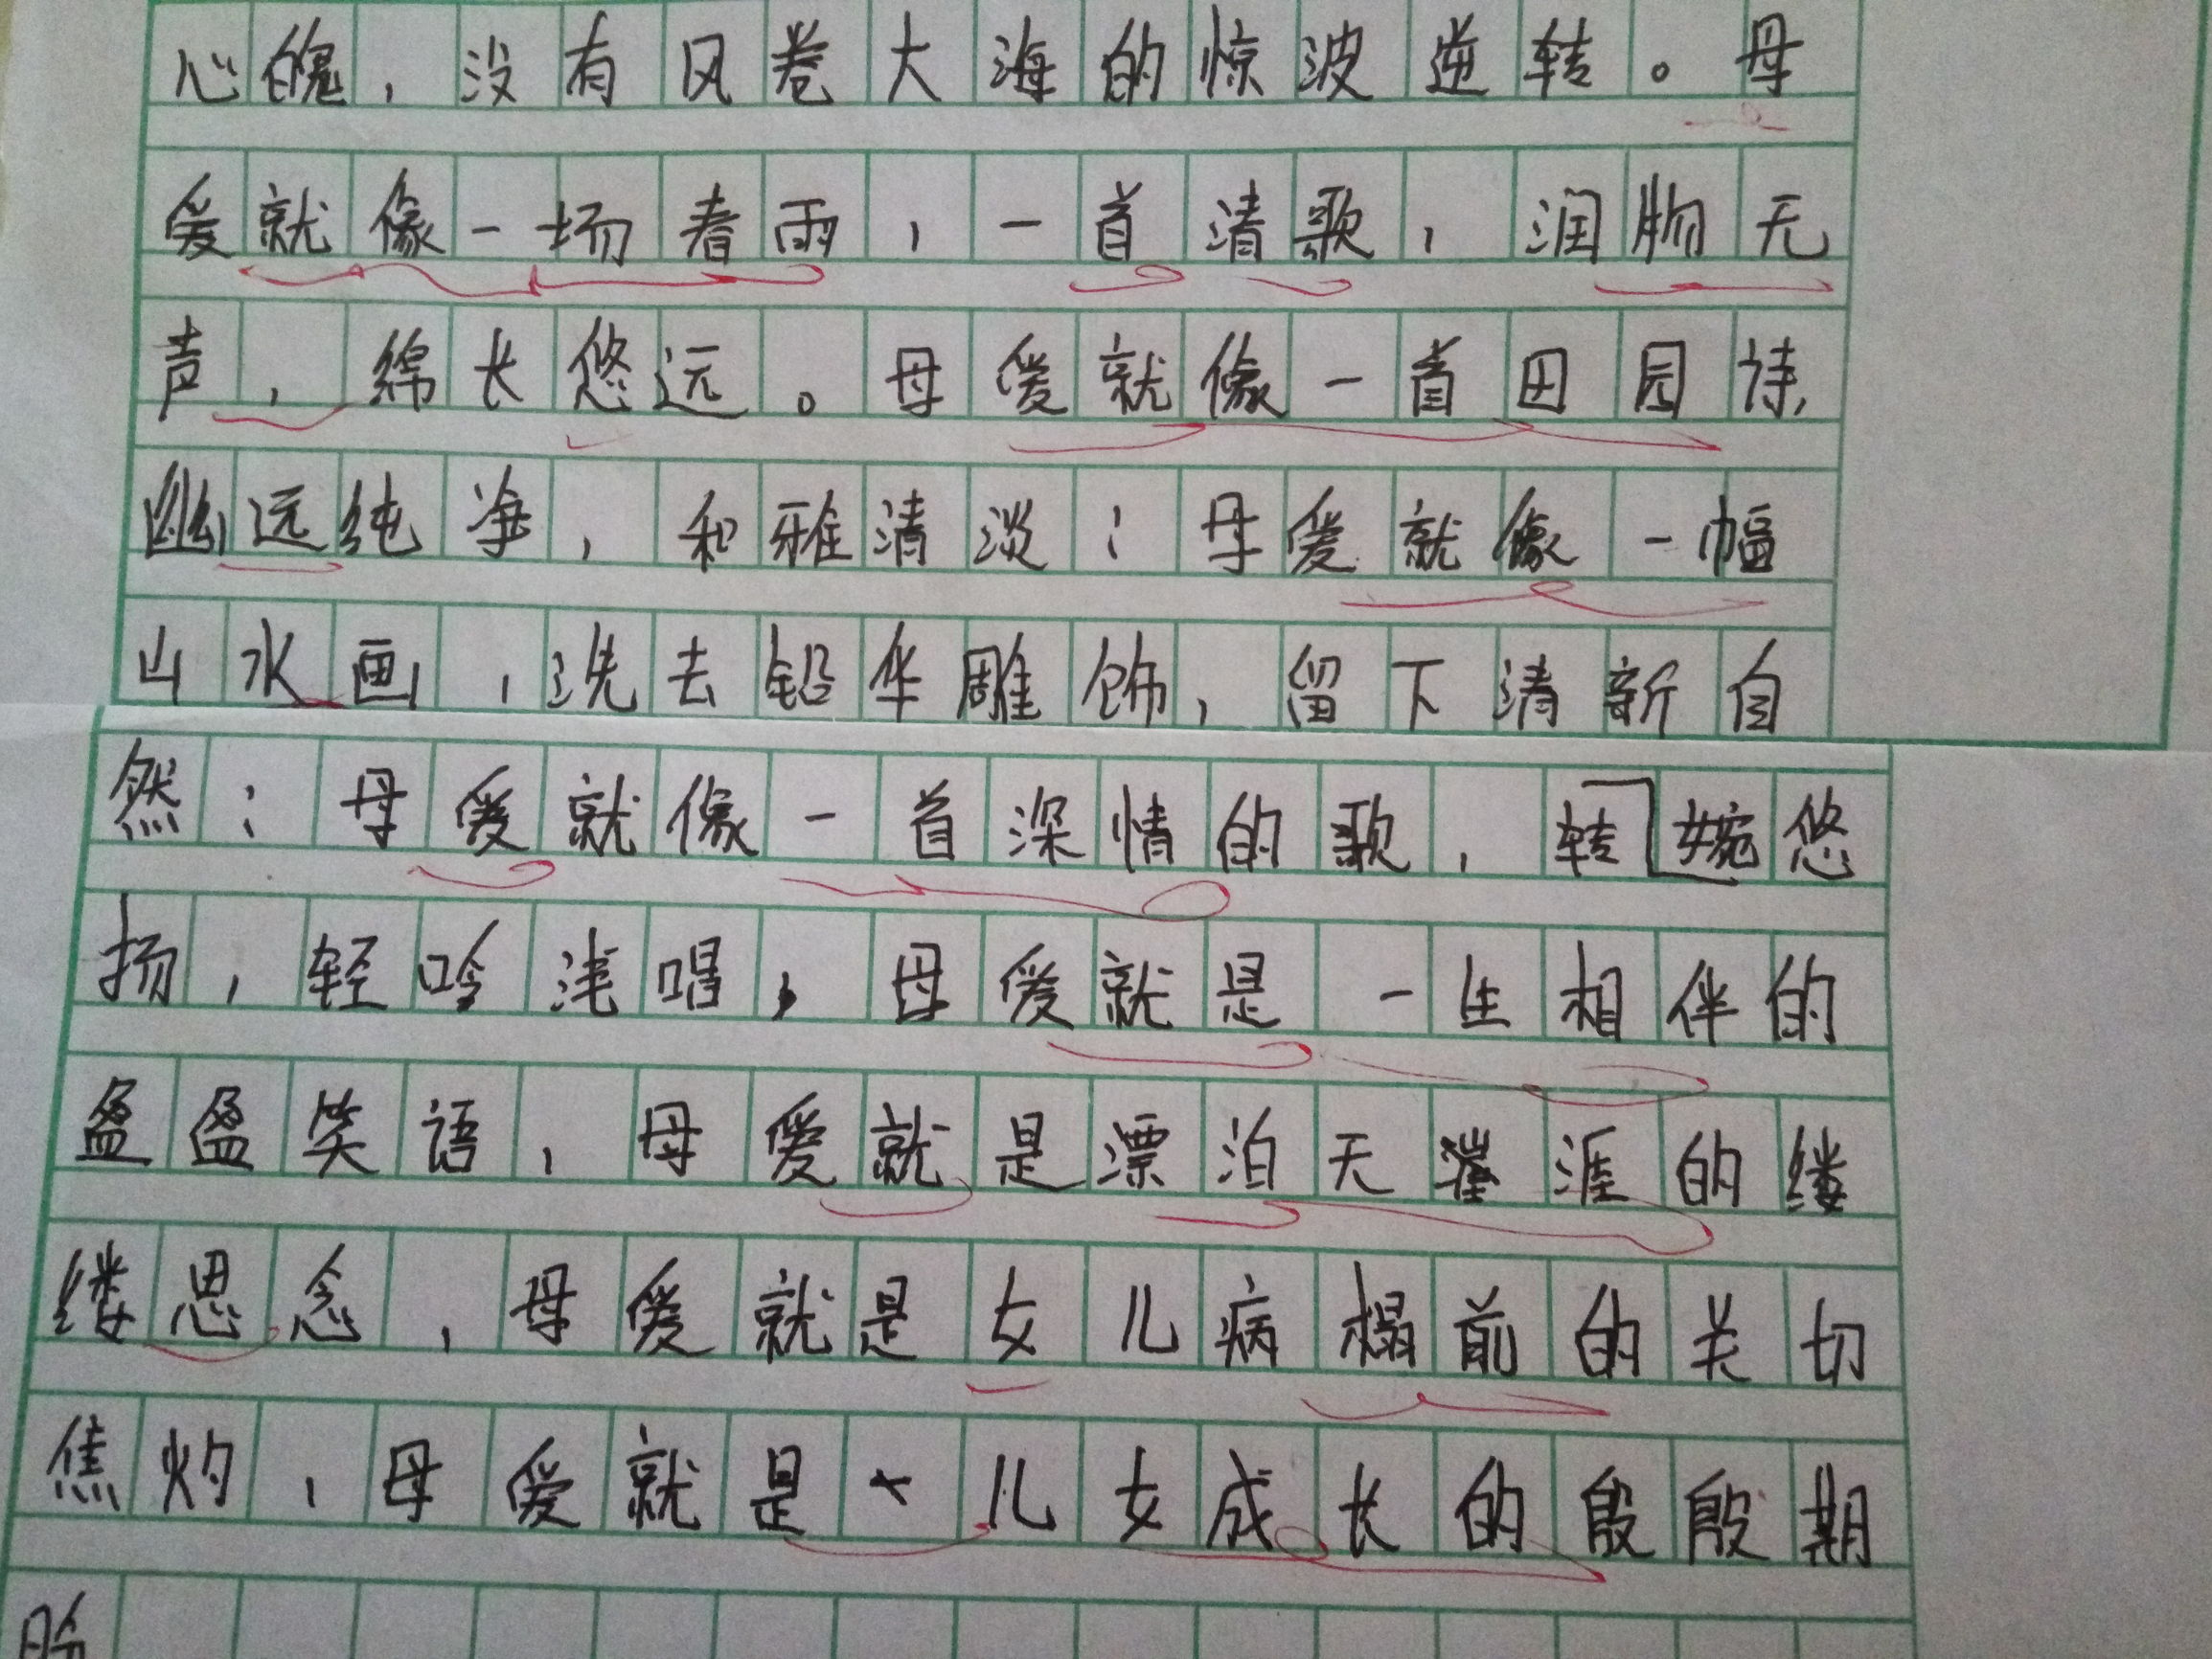 心魄，没有风卷大海的惊波逆转。母
爱就像一场春雨，一首清歌，润物无
声，绵长悠远。母爱就像一首田园诗，
幽远纯净，和雅清淡；母爱就像一幅
山水画，洗去铅华雕饰，留下清新自
然；母爱就像一首深情的歌，转婉悠
扬，轻吟浅唱，母爱就是一生相伴的
盈盈笑语，母爱就是漂泊天涯的缕
缕思念，母爱就是女儿病榻前的关切
焦灼，母爱就是儿女成长的殷殷期
盼